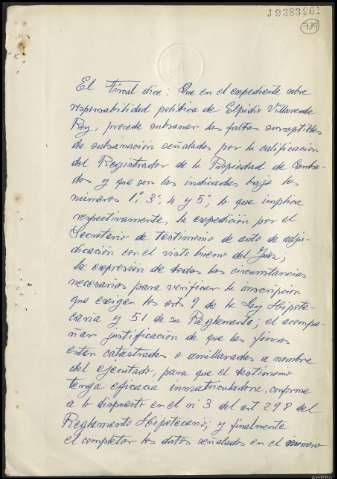 El Fiscal dice: Que en el expediente sobre
responsabilidad política de Elpidio Villaverde
Rey, procede subsanar las faltas susceptibles
de subsanación señaladas por la calificación
del Registrador de la Propiedad de
y que son las indicadas bajo los
números 1º, 3º, 4 y 5; lo que implica
respectivamente, la expedición por el
Secretario de testimonio de auto de adju-
dicación con el visto bueno del Juez;
la expresión de todas las circunstancias
necesarias para verificar la inscripción
que exigen los arts 9 de la Ley Hipote-
caria y 51 de su Reglamento; el acompa-
ñar justificación de que las fincas
estén catastradas o amillaradas a nombre
del ejecutado, para que el testimonio
tenga eficacia inmatriculadora, conforme
a lo dispuesto en el nº 3 del art 298 del
Reglamento Hipotecario; y finalmente
el completar los datos señalados en el número